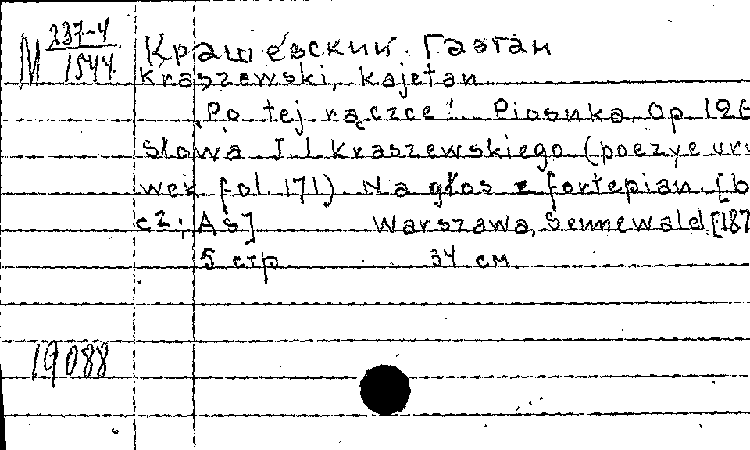 М 337-4
1544
Крашевский. Гаэтан
Kraszewski, Kajetan
"Po tej rączce". Piosnka Op 126
Słowa J I Kraszewskiego (poezye
wek fol. 171). Na głos z fortepian. [b
cz; As] Warszawa, Sennewald [187
5 стр 34 см
19088